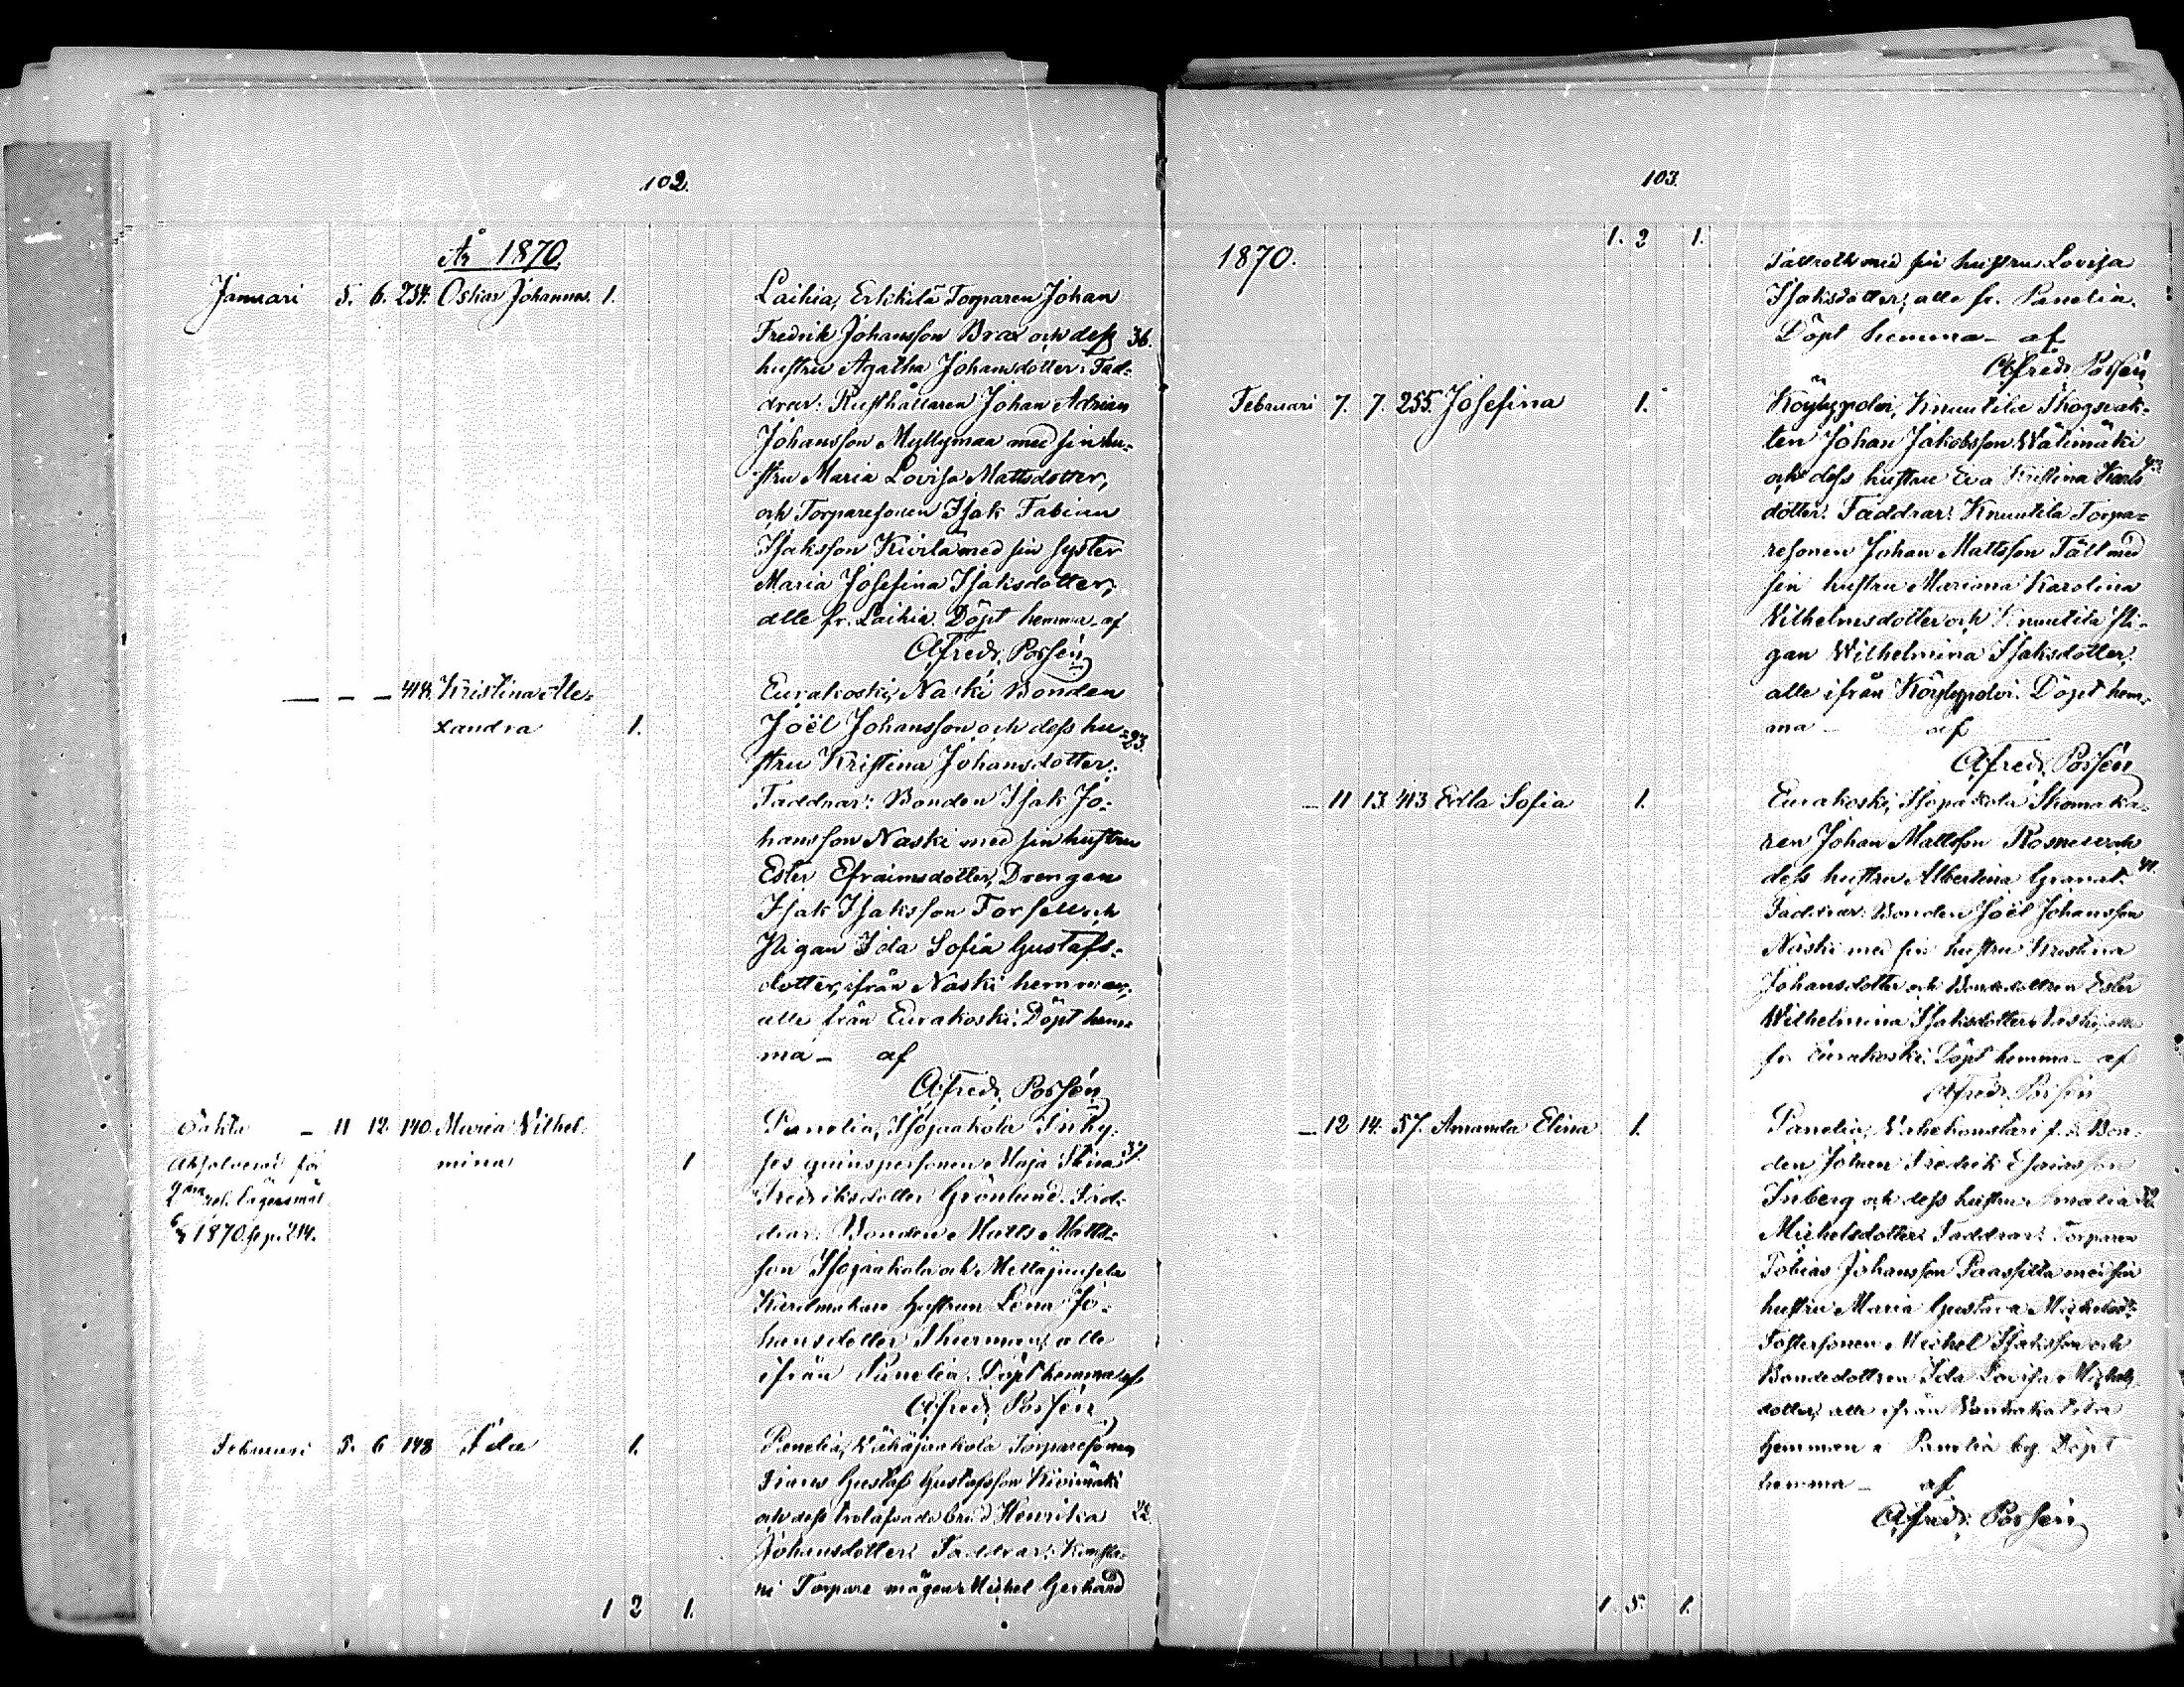 102.
År 1870.
Januari 5. 6. 254. Oskar Johannes. 1. Laihia, Erkkilä Torparen Johan
Fredrik Johansson Brax och dess 36.
hustru Agatha Johansdotter. Fad-
drar: Rusthållaren Johan Adrian
Johansson Myllymaa med sin hu-
stru Maria Lovisa Mattsdotter,
och Torparesonen Isak Fabian
Isaksson Kivilä med sin syster
Maria Josefina Isaksdotter,
alle fr. Laihia. Döpt hemma af
Alfredr. Porsén
— — — 414. Kristina Ale- Eurakoski, Naski Bonden
xandra 1. Joël Johansson och dess hu- 23.
stru Kristina Johansdotter.
Faddrar: Bonden Isak Jo-
hansson Naski med sin hustru
Ester Efraimsdotter, Drengen
Isak Isaksson Forsell och
Pigan Ida Sofia Gustafs-
dotter, ifrån Naski hemman,
alle från Eurakoski. Döpt hem-
ma — af
Alfredr. Porsén
Oäkta — 11 12 140. Maria Vilhel- Panelia, Isojaakola Inhy-
Absolverad för mina 1 ses qvinspersonen Maja Stina 37.
1870 p. 214. Fredriksdotter Grönlund. Fad-
drar: Bonden Matts Matts-
son Isojaakola och
hustrun Lena Jo-
hansdotter Thurman, alle
ifrån Panelia. Döpt hemma af
Alfredr. Porsén
Februari 5. 6 148 Ida 1. Panelia, Vähäjaakola Torparesonen
Frans Gustaf Gustafsson Kivimäki
och dess trolofvade brud Henrika 22.
Johansdotter. Faddrar:
Torpare mågen Michel Gerhard
1 2 1.
103.
1. 2 1.
1870.
med sin hustru Lovisa
Isaksdotter, alle fr. Panelia.
Döpt hemma — af
Alfredr. Porsén
Februari 7. 7. 255. Josefina 1. Köylypolvi, Knuutila Skogvak-
ten Johan Jakobsson Välimäki
och dess hustru Eva Kristina Karls
dotter. Faddrar: Knuutila Torpa-
resonen Johan Mattsson Täll med
sin hustru Mariana Karolina
Vilhelmsdotter och Knuutila Pi-
gan Wilhelmina Isaksdotter,
alle ifrån Köylypolvi. Döpt hem-
ma — af
Alfredr. Porsén
— 11 13. 413 Edla Sofia 1. Eurakoski, Isopakola Skomaka-
ren Johan Mattsson Rosnell och
dess hustru Albertina Granat. 41.
Faddrar: Bonden Joël Johansson
Naski med sin hustru Kristina
Johansdotter och Bondedottren Ester
Wilhelmina Isaksdotter Naski, alle
fr. Eurakoski. Döpt hemma — af
Alfredr. Porsén
— 12 14. 57. Amanda Elina 1. Panelia, f. d. Bon-
den Johan Fredrik Esaiasson
Inberg och dess hustru Amalia 32.
Michelsdotter. Faddrar: Torparen
Tobias Johansson Paassilta med sin
hustru Maria Gustava Michelsd:
Fostersonen Michel Isaksson och
Bondedottren Ida Lovisa Michels
dotter, alle ifrån
hemman i Panelia by. Döpt
hemma — af
Alfredr. Porsén
1. 5. 1.